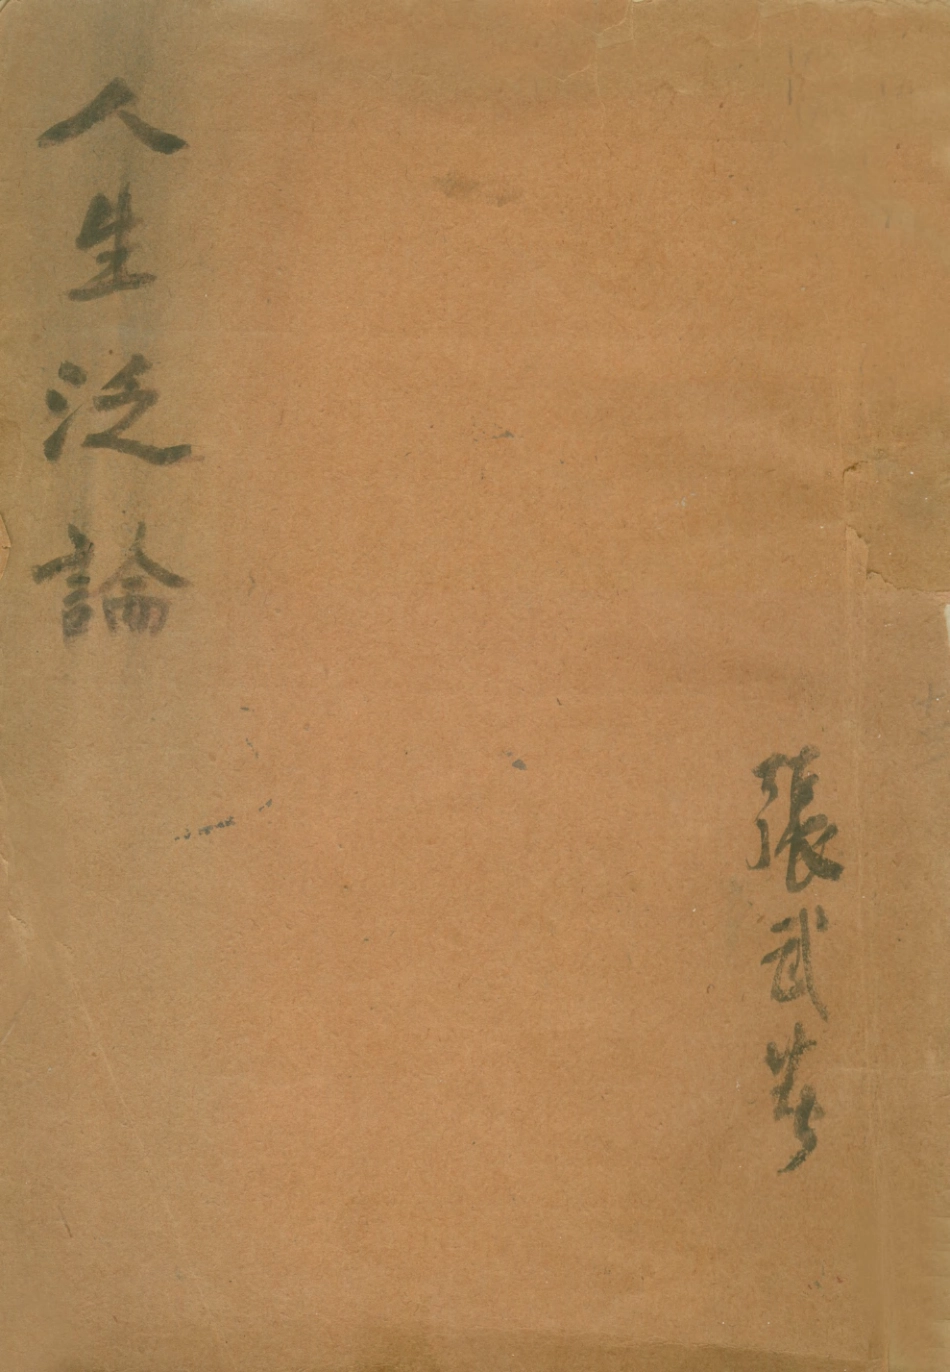 張武
人生泛論